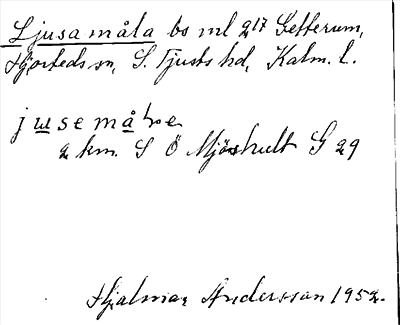 Ljusamåla bs ml 217 Getterum,
Hjorteds sn, S. Tjusts hd, Kalm. l.
jusemå
2 km. S Ö Mjöshult G 29
Hjalmar Andersson 1952.